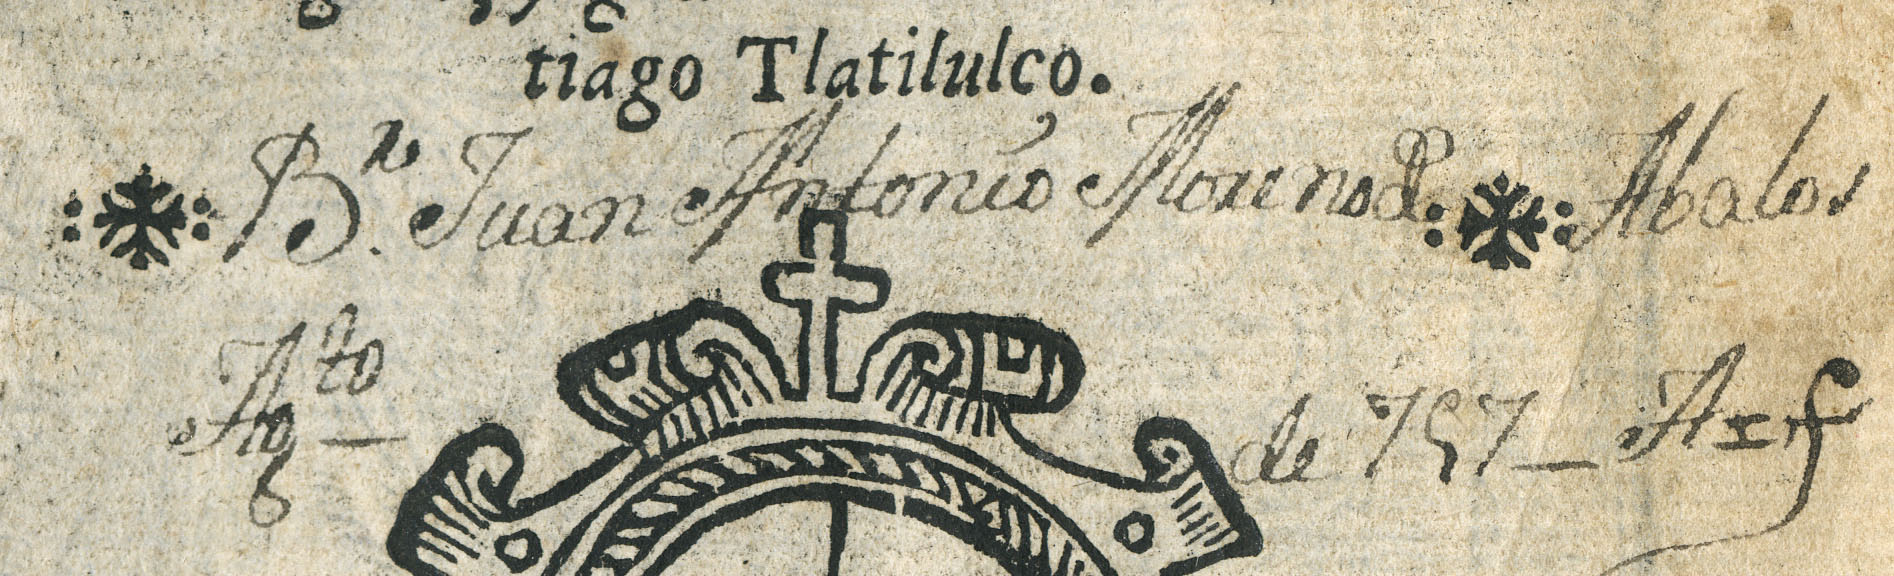 tiago Tlatilulco.
Br. Juan Antonio Moreno de Abalos
Agto de 757